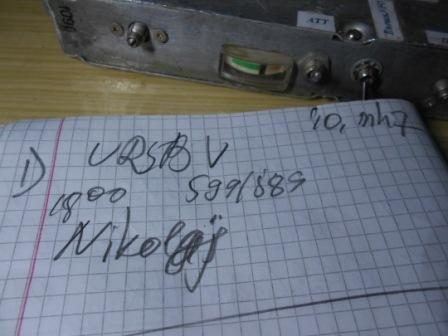 ATT
10, mhz
1) UR5TB V
1800 599/589
Nikolaj